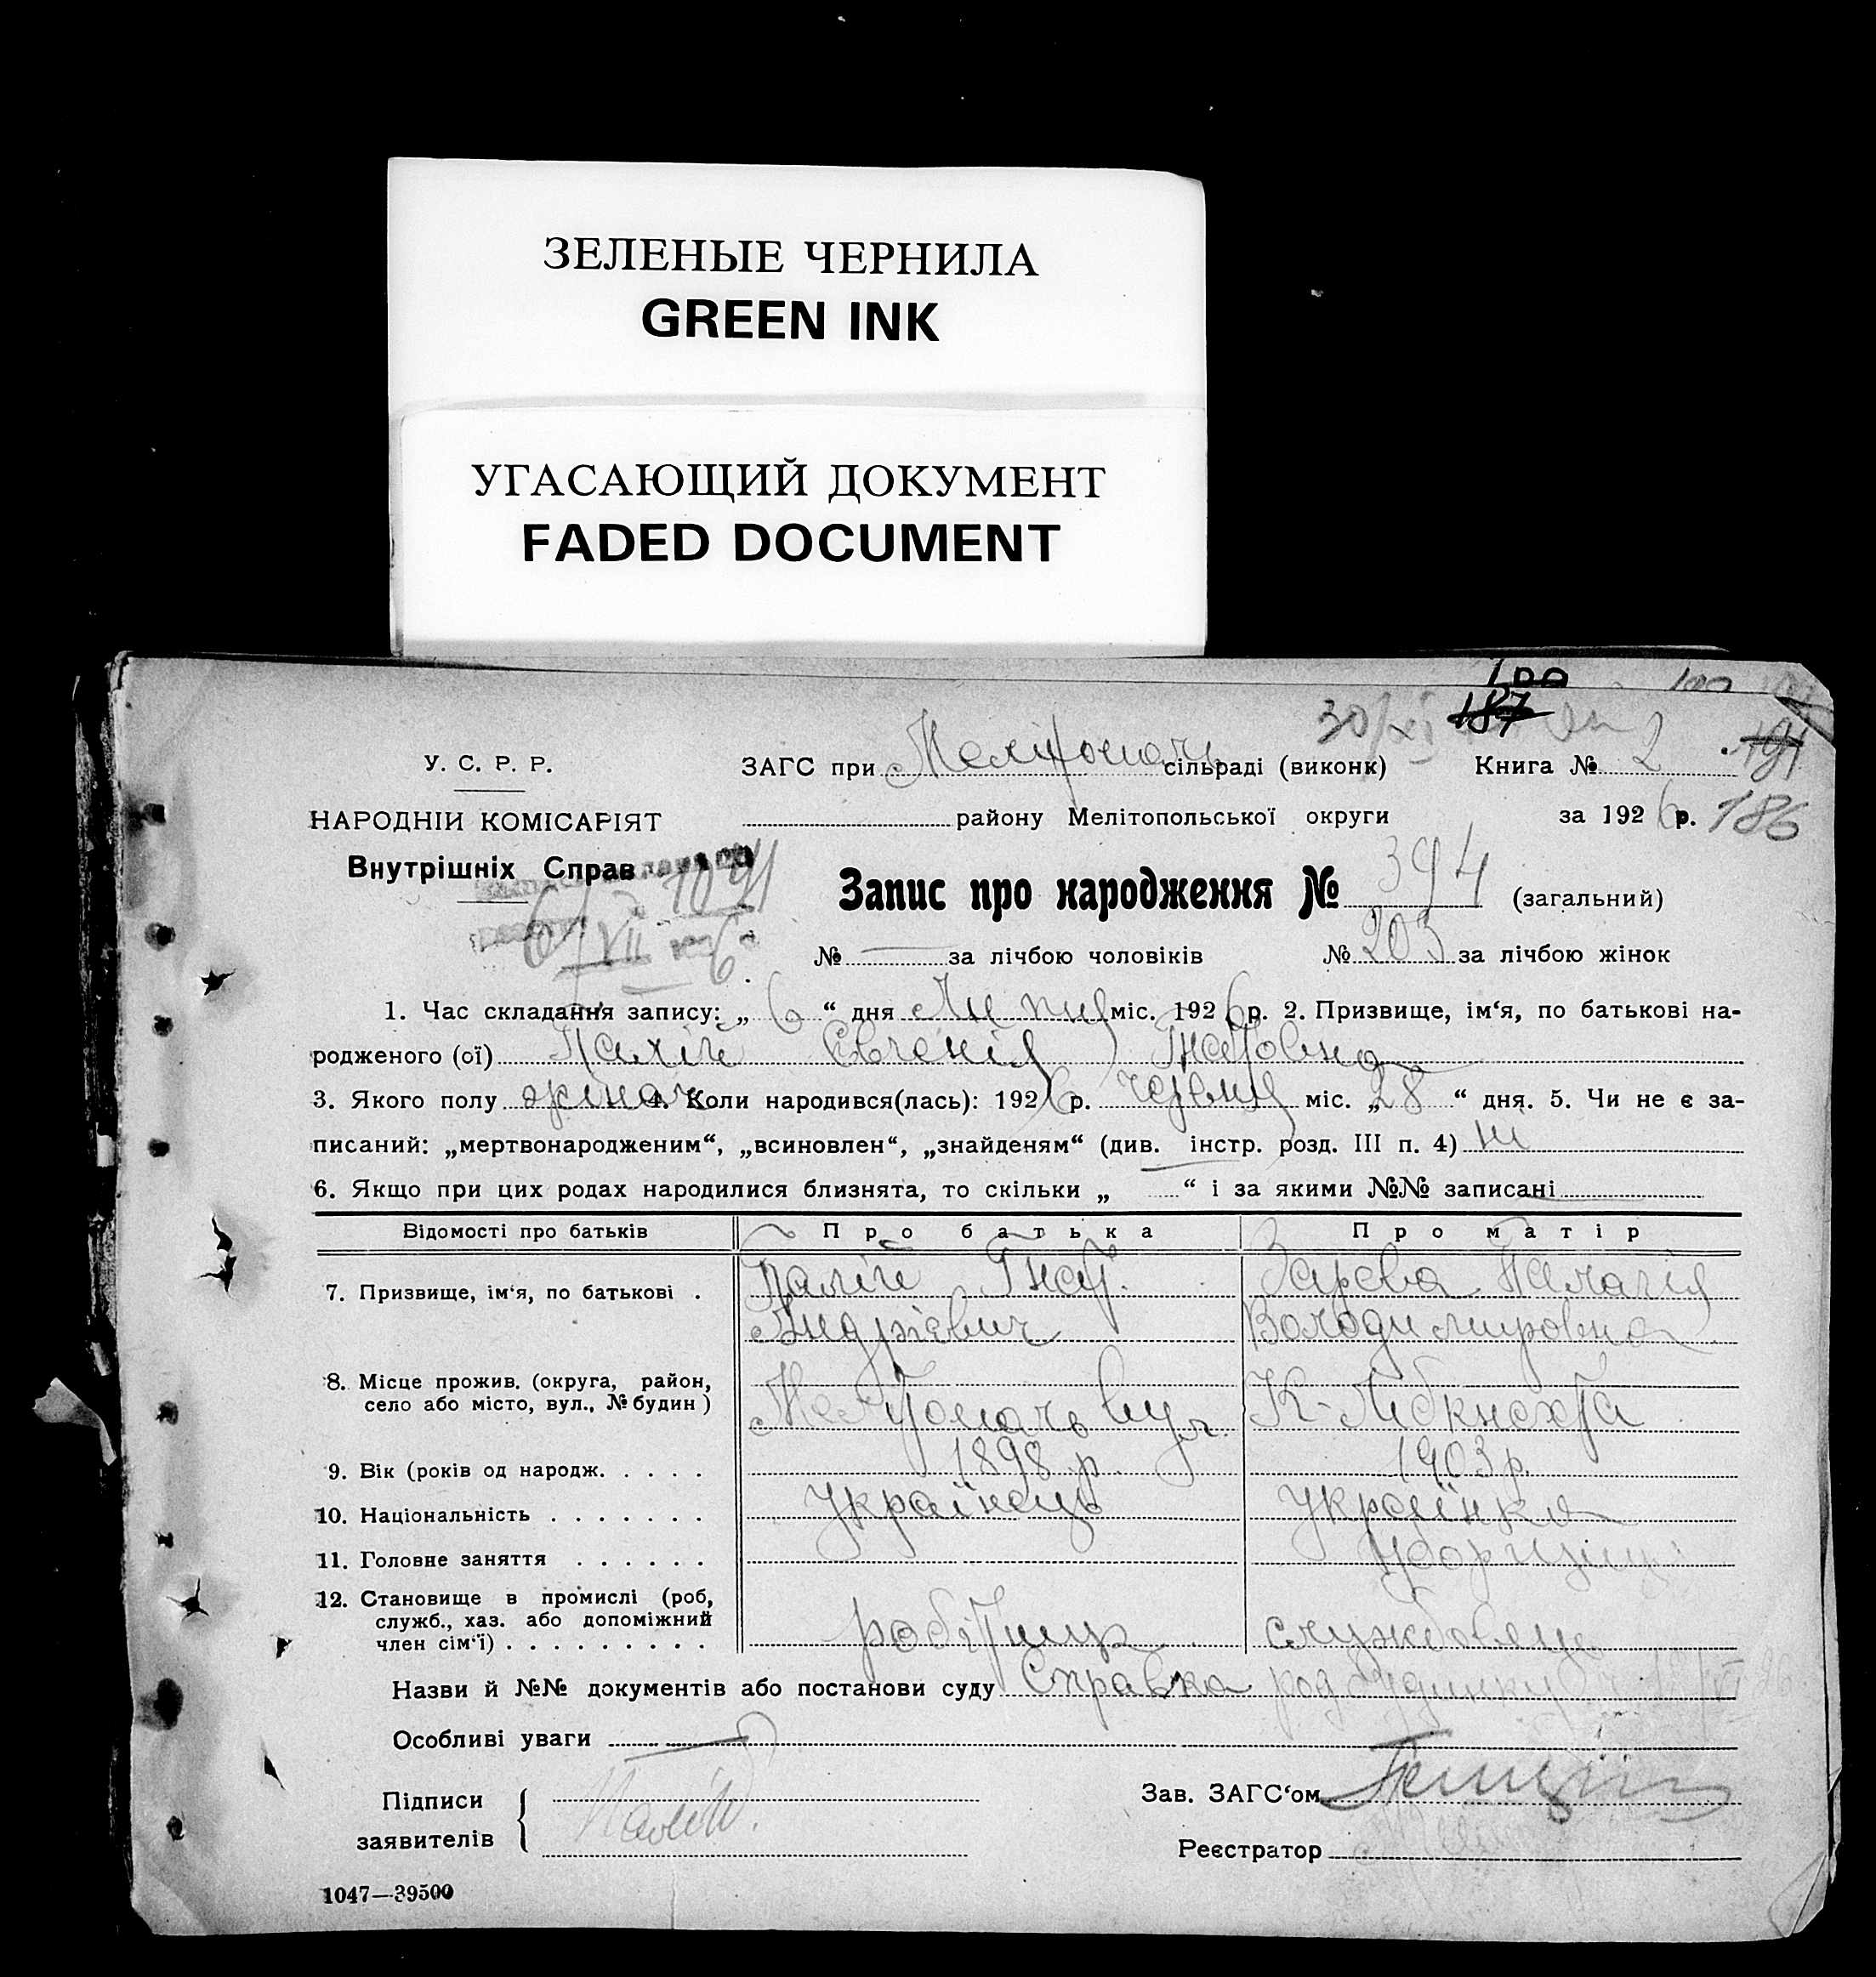 ЗЕЛЕНЫЕ ЧЕРНИЛА
GREEN INK
УГАСАЮЩИЙ ДОКУМЕНТ
FADED DOCUMENT
100
187
У. С. Р. Р.
ЗАГС при Мелітополь сільраді (виконк) Книга № 2
НАРОДНІЙ КОМІСАРІЯТ
району Мелітопольської округи за 1926 р. 186
Внутрішніх Справ
Запис про народження № 394 (загальний)
№ — за лічбою чоловіків № 203 за лічбою жінок
1. Час складання запису: „ 6 “ дня Липня міс. 1926 р. 2. Призвище, ім‘я, по батькові на-
родженого (ої) Палій Євгенія Гнатовна
3. Якого полу жіноч 4. Коли народився(лась): 1926 р. червня міс. „ 28 “ дня. 5. Чи не є за-
писаний: „мертвонародженим“, „всиновлен“, „знайденям“ (див. інстр. розд. III п. 4) ні
6. Якщо при цих родах народилися близнята, то скільки „ “ і за якими №№ записані
Відомості про батьків Про батька Про матір
7. Призвище, ім‘я, по батькові . Палій Гнат Зарева Палагія
Андрієвич Володимировна
8. Місце прожив. (округа, район,
село або місто, вул., № будин) Мелітополь вул. К-Лібкнехта
9. Вік (років од народж. . . . . 1898 р. 1903 р.
10. Національність . . . . . . . українець українка
11. Головне заняття . . . . . .
12. Становище в промислі (роб,
служб., хаз. або допоміжний
член сім‘ї) . . . . . . . . . робітник службовець
Назви й №№ документів або постанови суду Справка род будинку
Особливі уваги —
Підписи
заявителів Палій
Зав. ЗАГС‘ом
Реєстратор
1047—39500